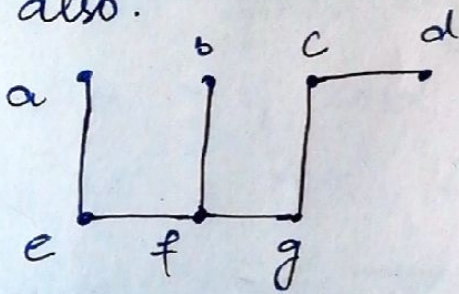 also.
b c d
a
e f g